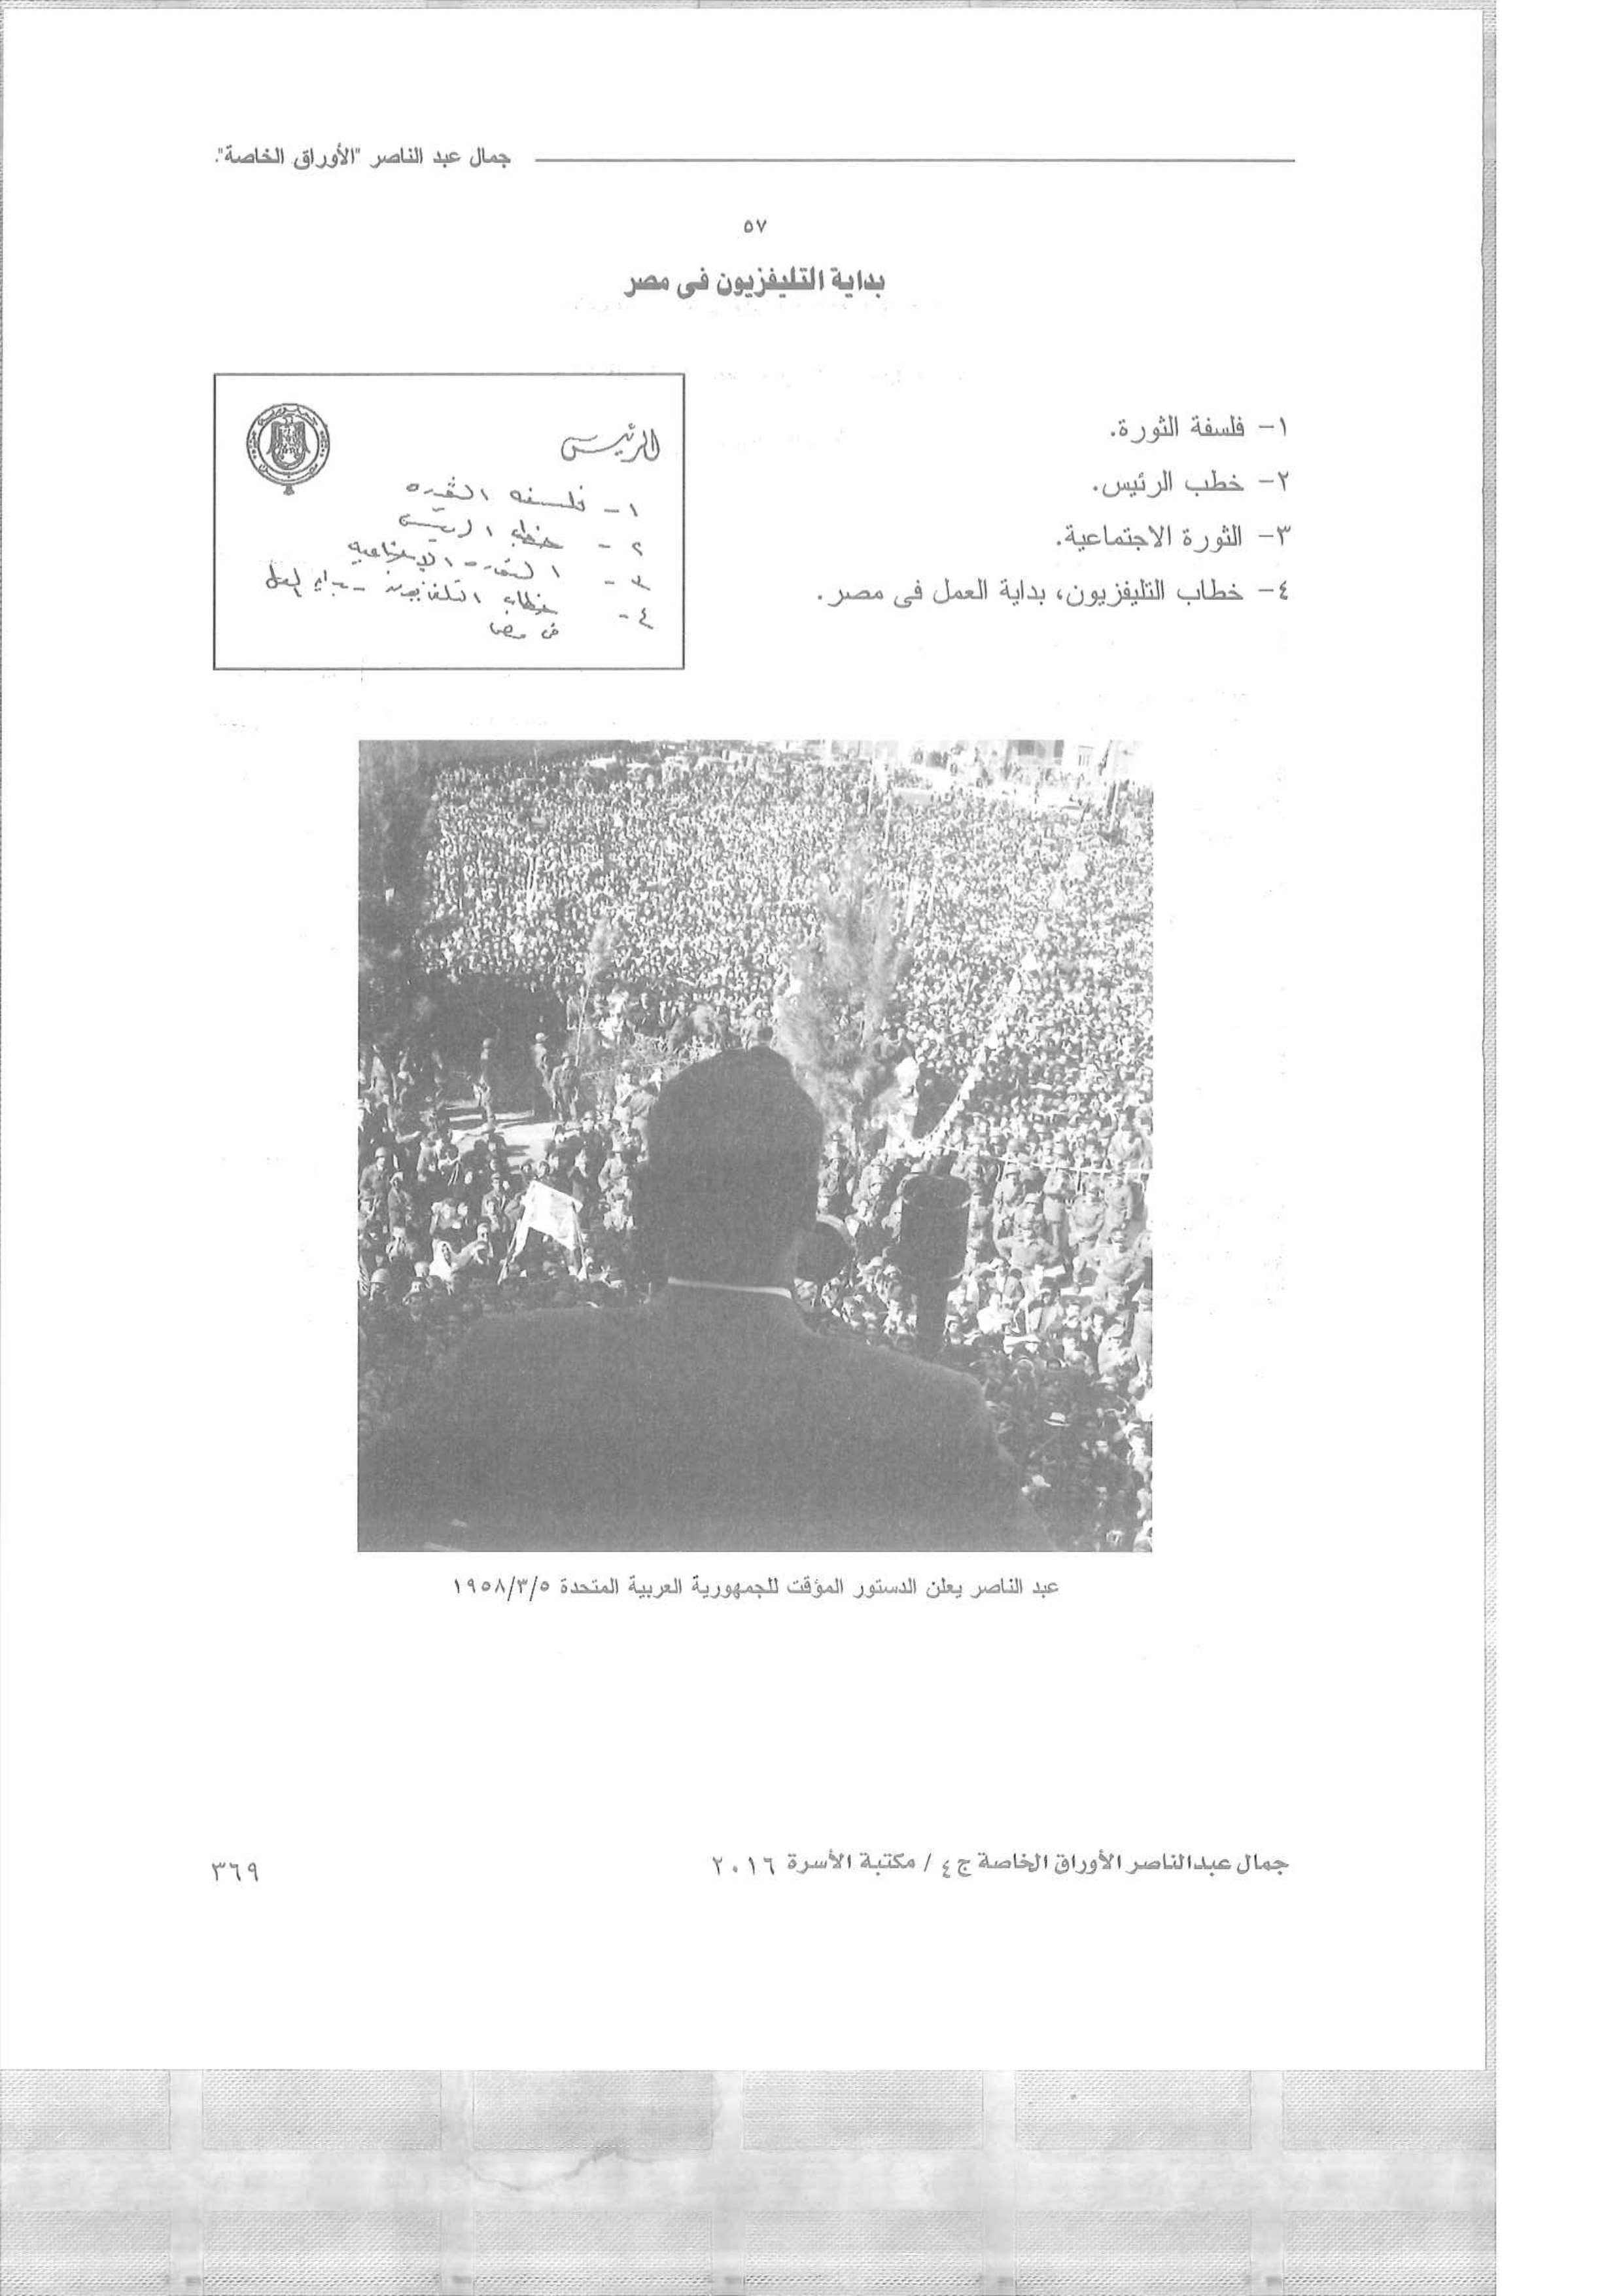 جمال عبد الناصر "الأوراق الخاصة".
٥٧
بداية التليفزيون فى مصر
١- فلسفة الثورة.
٢- خطب الرئيس.
٣- الثورة الاجتماعية.
٤- خطاب التليفزيون، بداية العمل فى مصر.
الرئيس
١- فلسفه الثوره
٢- خطب الرئيس
٣- الثوره الاجتماعيه
٤- خطاب التلفزيون - بدايه العمل
فى مصر
عبد الناصر يعلن الدستور المؤقت للجمهورية العربية المتحدة ١٩٥٨/٣/٥
جمال عبدالناصر الأوراق الخاصة ج٤ / مكتبة الأسرة ٢٠١٦
٣٦٩